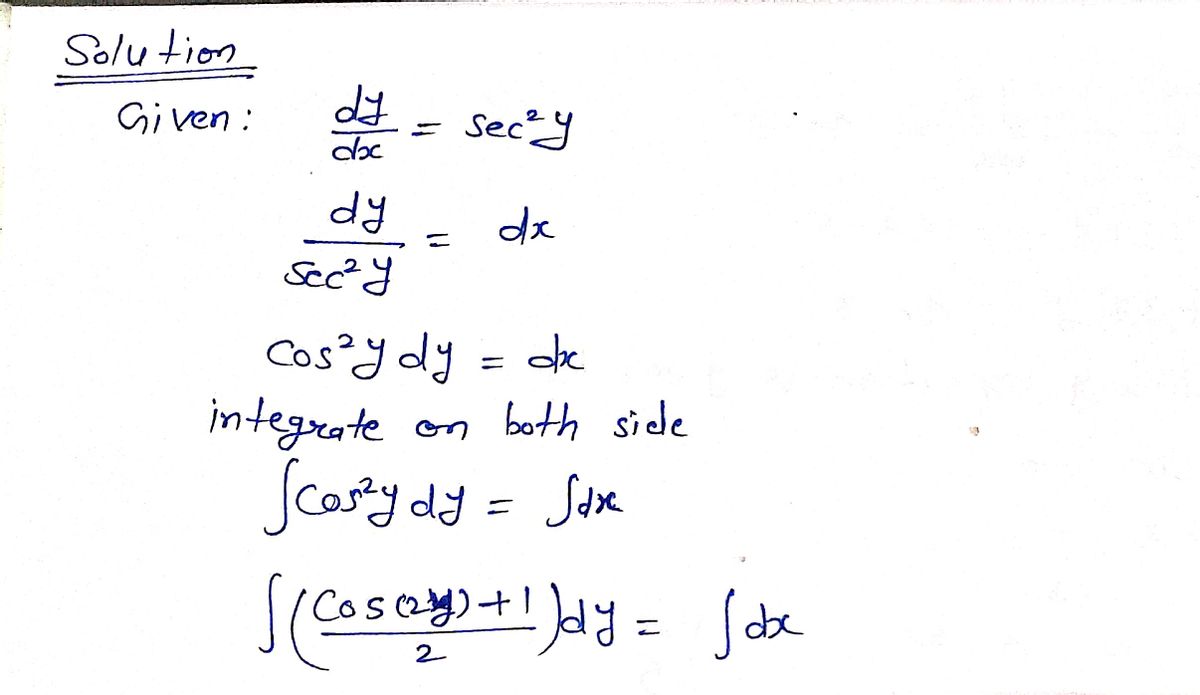 Solution
Given: dy/dx = sec²y
dy/sec²y = dx
cos²y dy = dx
integrate on both side
∫cos²y dy = ∫dx
∫(cos(2y)+1/2)dy = ∫dx